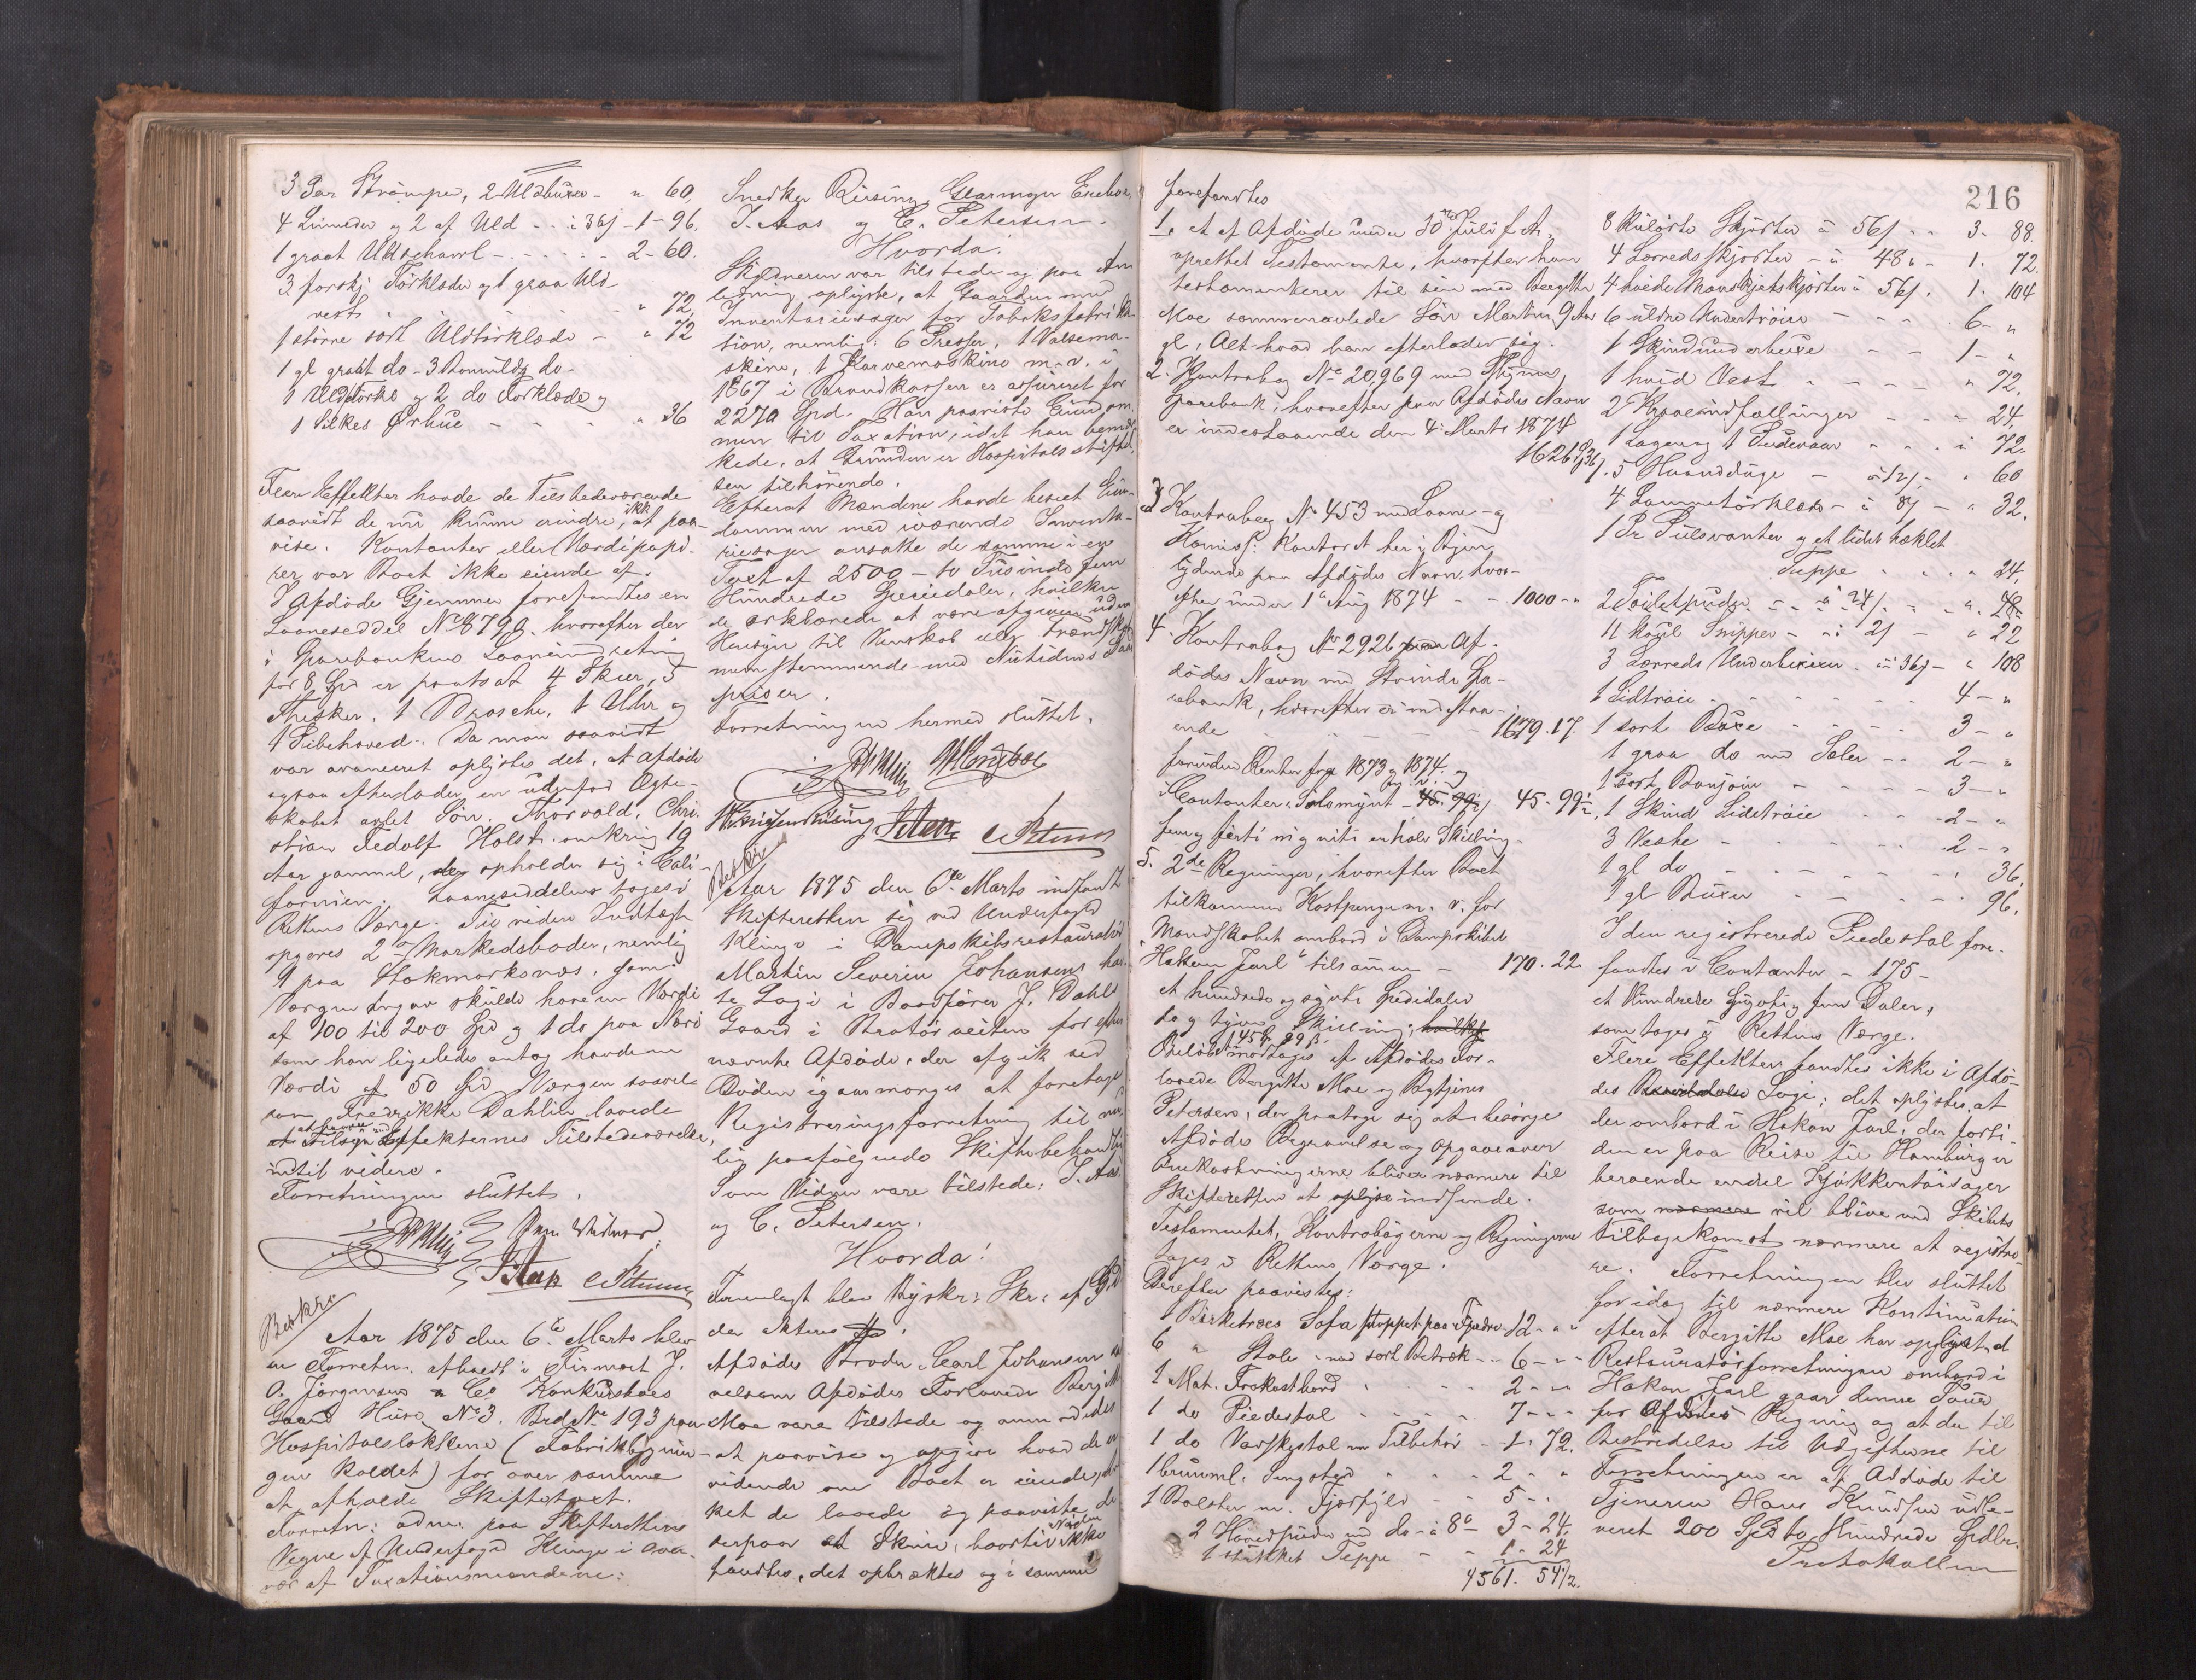 3 Par Strömper, 2 Uldbuxer - " 60,
4 Linneder og 2 af Uld - - à 36 ʃ - 1 - 96.
1 graat Uldschawl - - - - - - 2 - 60.
3 forskj. Törklæder og 1 graa Uld-
vest - - - " 72,
1 större sort Uldtörklæde - " 72
1 gl graat do - 3 Bomulds do -
1 Uldtörkl og 2 do Forklæder og
1 Silkes Ørhue - - - - " 36
Flere Effekter havde de Tilstedeværende
saavidt de nu kunne erindre, ikke at paa-
vise. Kontanter eller Værdipapi-
rer var Boet ikke eiende af.
I Afdöde Gjemmer forefandtes en
Laaneseddel No 8799. hvorefter der
i Sparebankens Laaneindretning
for 8 Spd er pantsat 4 Skeer, 5
Theskeer, 1 Brosche, 1 Uhr og
1 Pibehoved. Da man saavidt
var avanceret oplystes det, at Afdöde
ogsaa efterlader en udenfor Ægte-
skabet avlet Sön. Thorvald, Chri-
stian Fedolf Holst. omkring 19
Aar gammel, der opholder sig i Cali-
fornien. Laaneseddelen toges i
Rettens Værge. Til videre Indtægt
opgives 2de Markedsboder, nemlig
1 paa Stokmarksnæs, som
Værgen angav skulde have en Værdi
af 100 til 200 Spd og 1 do paa Næri
som han ligeledes antog havde en
Værdi af 50 Spd. Værgen saavel
som Fredrikke Dahlin lovede
at have Tilsyn med Effekternes Tilstedeværelse,
indtil videre.
Forretningen sluttet.
Beskr
Aar 1875 den 6te Marts blev
en Forretn. afholdt i Firmaet J.
O. Jörgensen & Co Konkursboes
Gaard Huse No 3. Brd No 193 paa
Hospitalslökkene (Fabrikbygnin-
gen kaldet) for over samme
at afholde Skiftetaxt.
Forretn: adm. paa Skifterettens
Vegne af Underfoged Klinge i Over-
vær af Taxationsmændene:
Snedker Rüsing, Glarmager
J. Aas og C. Petersen.
Hvorda!
Skyldneren var tilstede og paa An-
ledning oplyste, at Gaarden med
Inventariesager for Tobaksfabrika-
tion, nemlig: 6 Presser, 1 Valsema-
skine, 1 Karvemaskine m. v. i
1867 i Brandkassen er assureret for
2270 Spd. Han paaviste Eiendom-
men til Taxation, idet han bemær-
kede, at Grunden er Hospitals stiftel-
sen tilhörende.
Efterat Mændene havde beseet Eien-
dommen med iværende Inventa-
riesager ansatte de samme i en
Taxt af 2500 - to Tusinde fem
Hundrede Speciedaler, hvilken
de erklærede at være afgiven uden
Hensyn til Venskab eller Frændskab
men stemmende med Nutidens
priser.
Forretningen hermed sluttet.
Beskr
Aar 1875 den 6te Marts indfandt
Skifteretten sig ved Underfoged
Klinge i Dampskibsrestauratör
Martin Severin Johansens hav-
te Logi i Baadförer J. Dahls
Gaard i Bratörveiten for efter
nævnte Afdöde, der afgik ved
Döden igaarmorges at foretage
Registreringsforretning til
lig paafölgende Skiftebehandling
Som Vidner vare tilstede: J. Aas
og C. Petersen.
Hvorda!
Fremlagt blev Byskr: Skr: af
der akteres
Afdödes Broder Carl Johansen
velsom Afdödes Forlovede Bergitte
Moe vare tilstede og anmodedes
at paavise og opgive hvad de er
vidende om Boet er eiende,
ket de lovede og paaviste
derpaa et Skrin, hvortil Nöglen ikke
fandtes, det opbrökkes og i samme
216
forefandtes
1. et af Afdöde under 30te Juli f. A.
oprettet Testamente, hvorefter han
testamenterer til sin med Bergitte
Moe sammenavlede Sön Martin 9 Aar
gl, Alt hvad han efterlader sig.
2. Kontrabog No 20,969 med Thjems
Sparebank, hvorefter paa Afdödes Navn
er indestaaende den 4. Marts 1874
1626 36.
3. Kontrabog No 453 med Laane- og
Komiss. Kontoret her i Byen
lydende paa Afdödes Navn. hvor-
efter under 1ste Aug 1874 - - 1000 - "
4. Kontrabog No 2926 paa Af-
dödes Navn med Strinde Spa-
rebank, hvorefter er indestaa-
ende - - - - - 1679. 17.
foruden Renter for 1873 og 1874. og
Contanter: Sölvmynt - 45. 99½ 45. 99½
fem og förti og niti en halv Skilling.
5. 2de Regninger, hvorefter Boet
tilkommer Kostpenge m. v. for
Mandskabet ombord i Dampskibet
"Hakon Jarl" tilsammen - 170. 22.
et hundrede og sytti Speciedaler
to og tyve Skilling,
Belöbet 45 99 ß. modtages af Afdödes For-
lovede Bergitte Moe og
Petersen, der paatage sig at besörge
Afdödes Begravelse og Opgave over
Omkostningerne bliver nærmere til
Skifteretten at oplyse indsende.
Testamentet, Kontrabögerne og Regningerne
toges i Rettens Værge.
Derefter paavistes:
1 Birketræes Sofa stoppet paa Fjedre 12 - "
6 " Stole - med sort Betræk - - 6 - "
1 Mah. Frokostbord - - - 2 - "
1 do Piedestal - - - - 7 - "
1 do Vaskestol m Tilbehör - 1. 72.
1 brunml. Sengested - - - 2 - "
1 Bolster m. Fjærfyld - - 5 - "
2 Hovedpuder med do - à 8 - 3 - 24.
1 stukket Teppe - - 1 - 24
4561. 54½.
8 kulörte Skjorter à 56ʃ - - 3 - 88.
4 Lærreds Skjorter - à 48 " - 1. 72.
4 hvide Manskjetskjorter à 56ʃ. 1. 104
6 uldne Undertröier - - - 6 - "
1 Skindunderbuxe - - 1 - "
1 hvid Vest - - - - - " 72,
2 Kraveindfællinger - - - " 24,
1 Lagen og 1 Pudevaar - - - i 72.
5 Haandduge - à 12ʃ - " 60
4 Lommetörklæder - à 8ʃ - " 32.
1 Pr Pulsvanter og et lidet hæklet
Teppe - - - " 24,
2 Toiletpuder - - à 24ʃ. - - " 48.
11 Snipper - - à 2ʃ - " 22
3 Lærreds Underbuxer - à 36ʃ - " 108
1 Sidtröie - - - - - 4 - "
1 sort Buxe - - - - 3 - "
1 graa do med Seler - - 2 - "
1 sort Bonjour - - - - 3 - "
1 Skind Sidetröie - - - 2 - "
3 Veste - - - - - 2 - "
1 gl do - - - - - - " 36,
1 gl Buxer - - - - - " 96,
I den registrerede Piedestal fore-
fandtes i Contanter - 175 -
et Hundrede Sytti og fem Daler,
som toges i Rettens Værge.
Flere Effekter fandtes ikke i Afdö-
des Logi; det oplystes, at
der ombord i Hakon Jarl, der forti-
den er paa Reise til Hamburg er
beroende endel Kjökkentöisager
som nærmere vil blive ved Skibets
Tilbagekomst nærmere at registre-
re. Forretningen blev sluttet
for idag til nærmere Kontinuation
efterat Bergitte Moe har oplyst at
Restauratörforretningen ombord i
Hakon Jarl gaar denne Tour
for Afdödes Regning og at der til
Bestridelse til Udgifterne til
Forretningen er af Afdöde til
Tjeneren Hans Knudsen udle-
veret 200 Spd to Hundrede Spdlr.
Protokollen